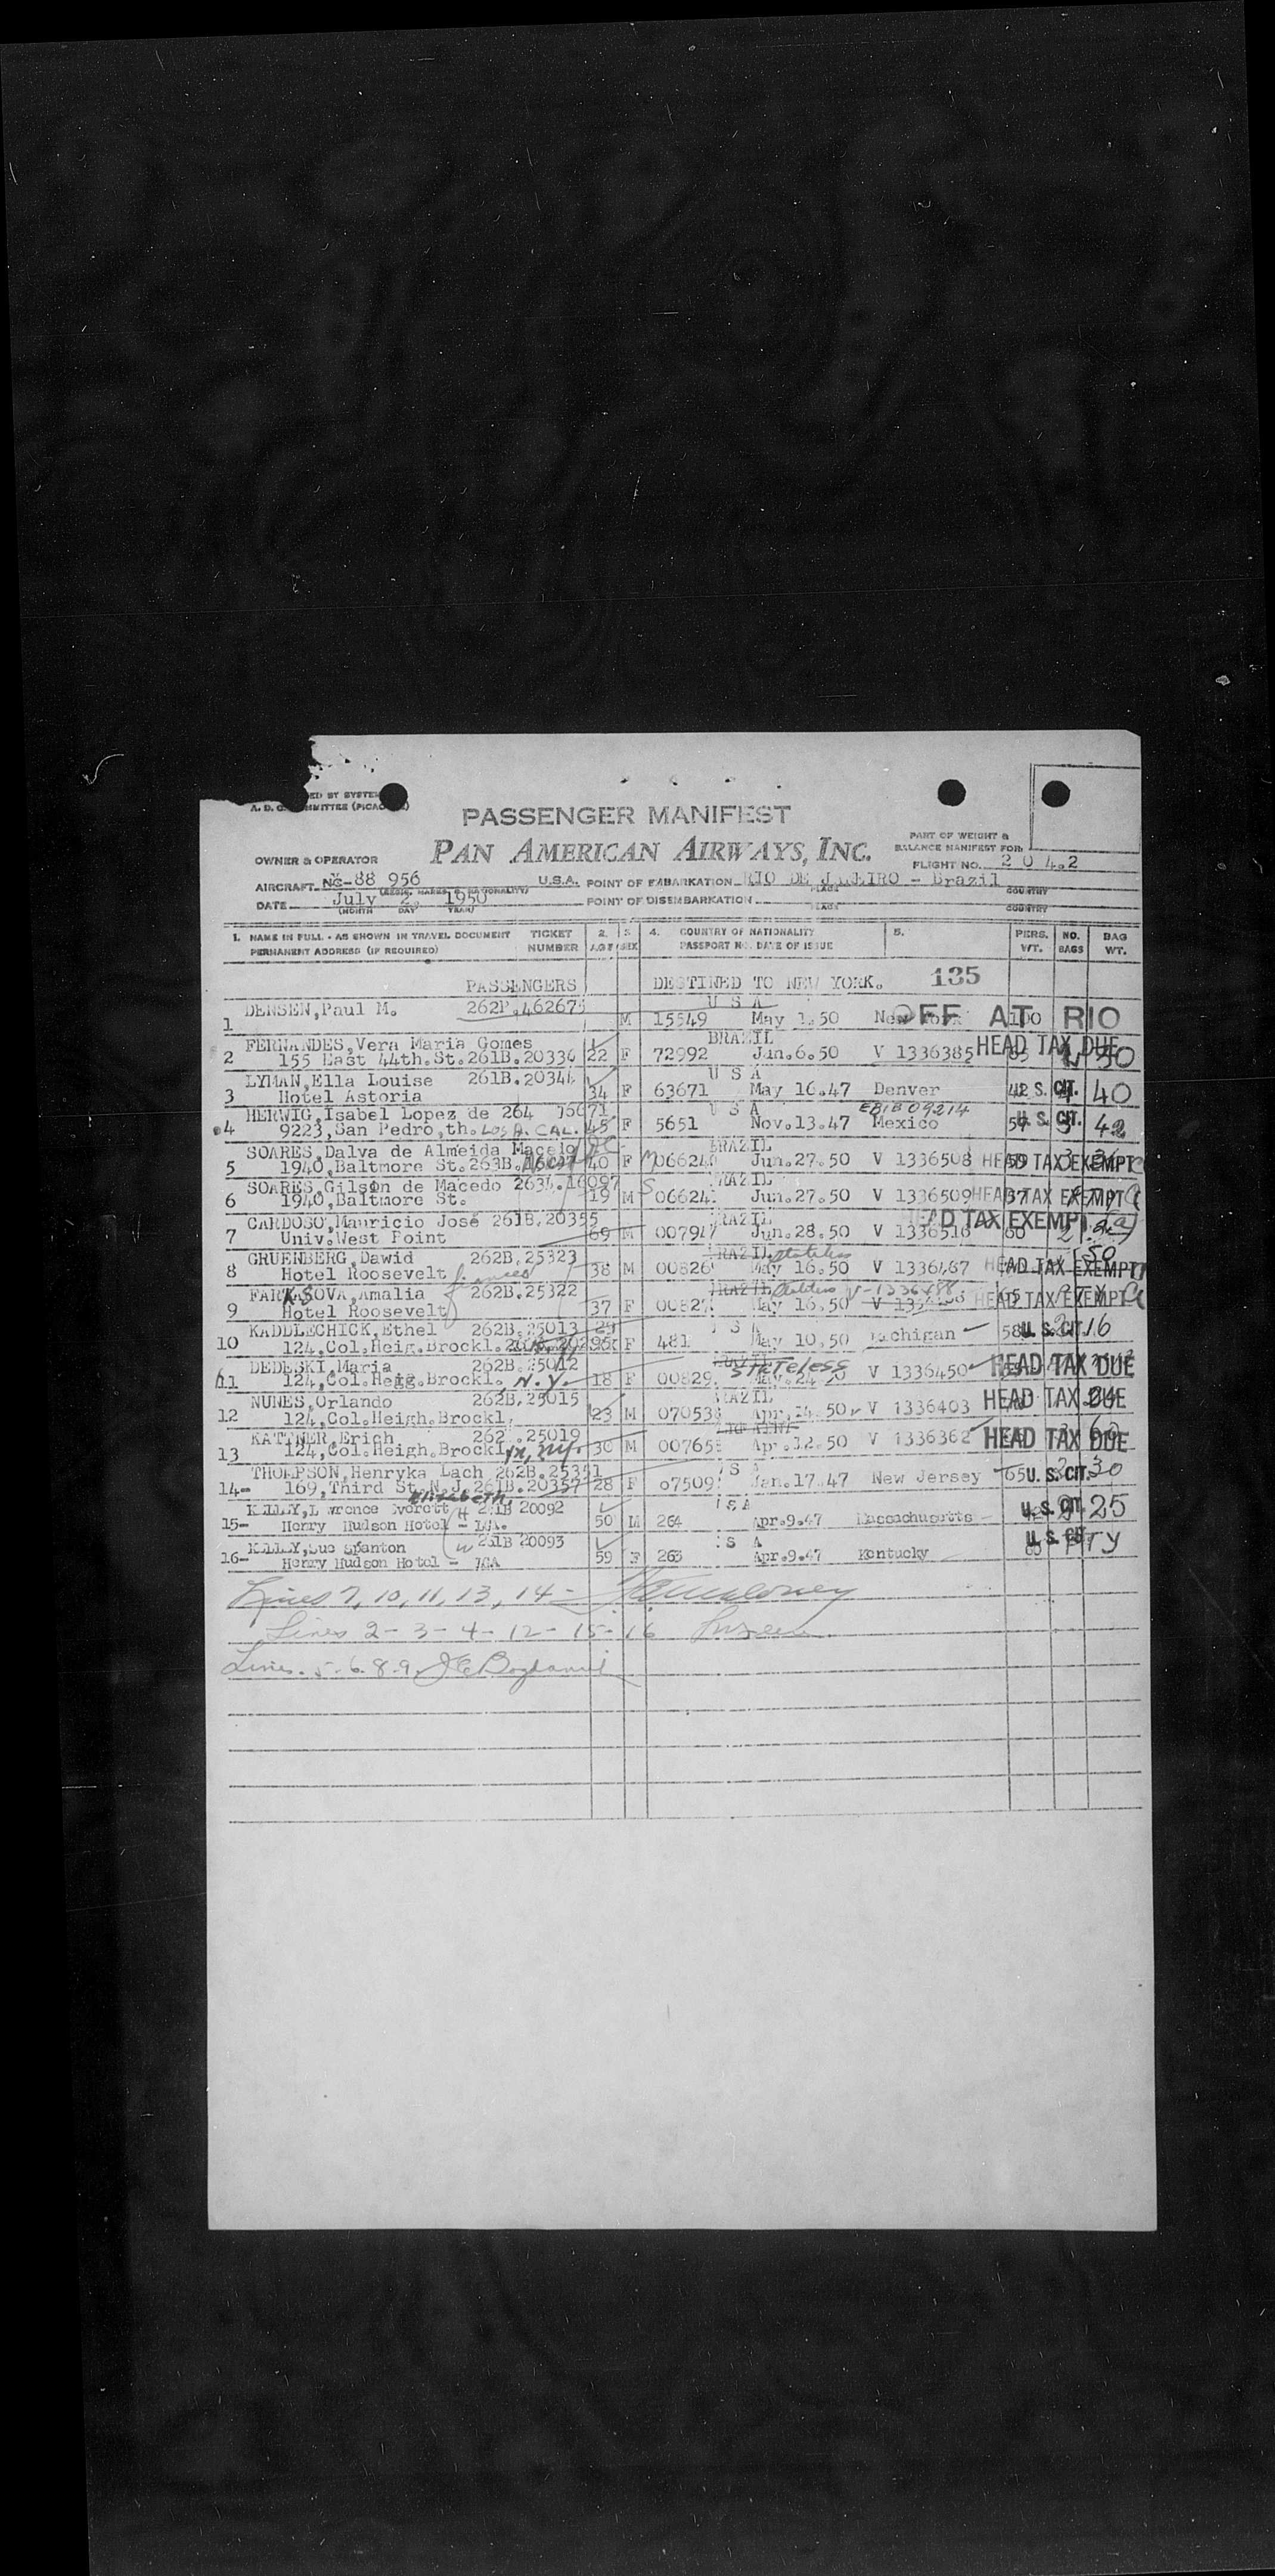 PASSENGER MANIFEST
PAN AMERICAN AIRWAYS, INC.
PART OF WEIGHT &
BALANCE MANIFEST FOR:
OWNER & OPERATOR
FLIGHT NO. 2042
AIRCRAFT NC-88 956 U.S.A. POINT OF EMBARKATION RIO DE JANEIRO - Brazil
DATE July 2, 1950 POINT OF DISEMBARKATION
(MONTH DAY YEAR) PLACE COUNTRY
1. NAME IN FULL - AS SHOWN IN TRAVEL DOCUMENT TICKET 2. 3. 4. COUNTRY OF NATIONALITY 5. PERS. NO. BAG
PERMANENT ADDRESS (IF REQUIRED) NUMBER AGE SEX PASSPORT NO. DATE OF ISSUE WT. BAGS WT.
PASSENGERS DESTINED TO NEW YORK. 135
DENSEN, Paul M. U S A
1 M 15549 May 1.50 New York OFF AT RIO
FERNANDES, Vera Maria Gomes BRAZIL
2 155 East 44th.St. 261B.20330 22 F 72992 Jun.6.50 V 1336385 HEAD TAX DUE
LYMAN, Ella Louise 261B. U S A
3 Hotel Astoria 34 F 63671 May 16.47 Denver U. S. CIT. 40
HERWIG, Isabel Lopez de 264 U S A
4 9223, San Pedro, th. LOS A. CAL. 45 F 5651 Nov.13.47 Mexico U. S. CIT. 42
SOARES, Dalva de Almeida Macedo BRAZIL
5 1940, Baltmore St. 263B. 40 F Jun.27.50 V 1336508 HEAD TAX EXEMPT
SOARES, Gilson de Macedo 263B.16097 BRAZIL
6 1940, Baltmore St. 19 M Jun.27.50 V 1336509 HEAD TAX EXEMPT
CARDOSO, Mauricio José 261B.20355 BRAZIL
7 Univ.West Point 69 M 00791 Jun.28.50 V 1336516 HEAD TAX EXEMPT
GRUENBERG, Dawid 262B.25323 BRAZIL stateless 50
8 Hotel Roosevelt 38 M 00826 May 16.50 V 1336487 HEAD TAX EXEMPT
FARKASOVA, Amalia 262B.25322 BRAZIL V-1336488
9 Hotel Roosevelt 37 F 00827 May 16.50 HEAD TAX EXEMPT
KADDLECHICK, Ethel 262B.25013 U S A
10 124, Col.Heig.Brockl. F 481 May 10.50 Michigan 58 U. S. CIT. 16
DEDESKI, Maria 262B.25012 STATELESS
11 124, Col.Heig.Brockl. N.Y. 18 F 00829 May.24 V 1336450 HEAD TAX DUE
NUNES, Orlando 262B.25015 BRAZIL
12 124, Col.Heigh.Brockl. 23 M Apr.14.50 V 1336403 HEAD TAX DUE
KATTNER, Erich 262B.25019
13 124, Col.Heigh.Brockl. 30 M 00765 Apr.12.50 V 1336362 HEAD TAX DUE
THOMPSON, Henryka Lach 262B.25351 U S A
14- 169, Third St. N.J. 261B.20357 28 F 07509 Jan.17.47 New Jersey 65 U. S. CIT. 30
Elizabeth
KELLEY, Lawrence Everett H 261B 20092 U S A
15- Henry Hudson Hotel - 50 M 264 Apr.9.47 Massachusetts U. S. CIT. 25
KELLEY, Sue Spanton W 261B 20093 U S A
16- Henry Hudson Hotel - 59 F 263 Apr.9.47 Kentucky U. S. CIT. TY
Lines 7, 10, 11, 13, 14 -
Lines 2 - 3 - 4 - 12 - 15 - 16
Lines. 5. 6. 8. 9.